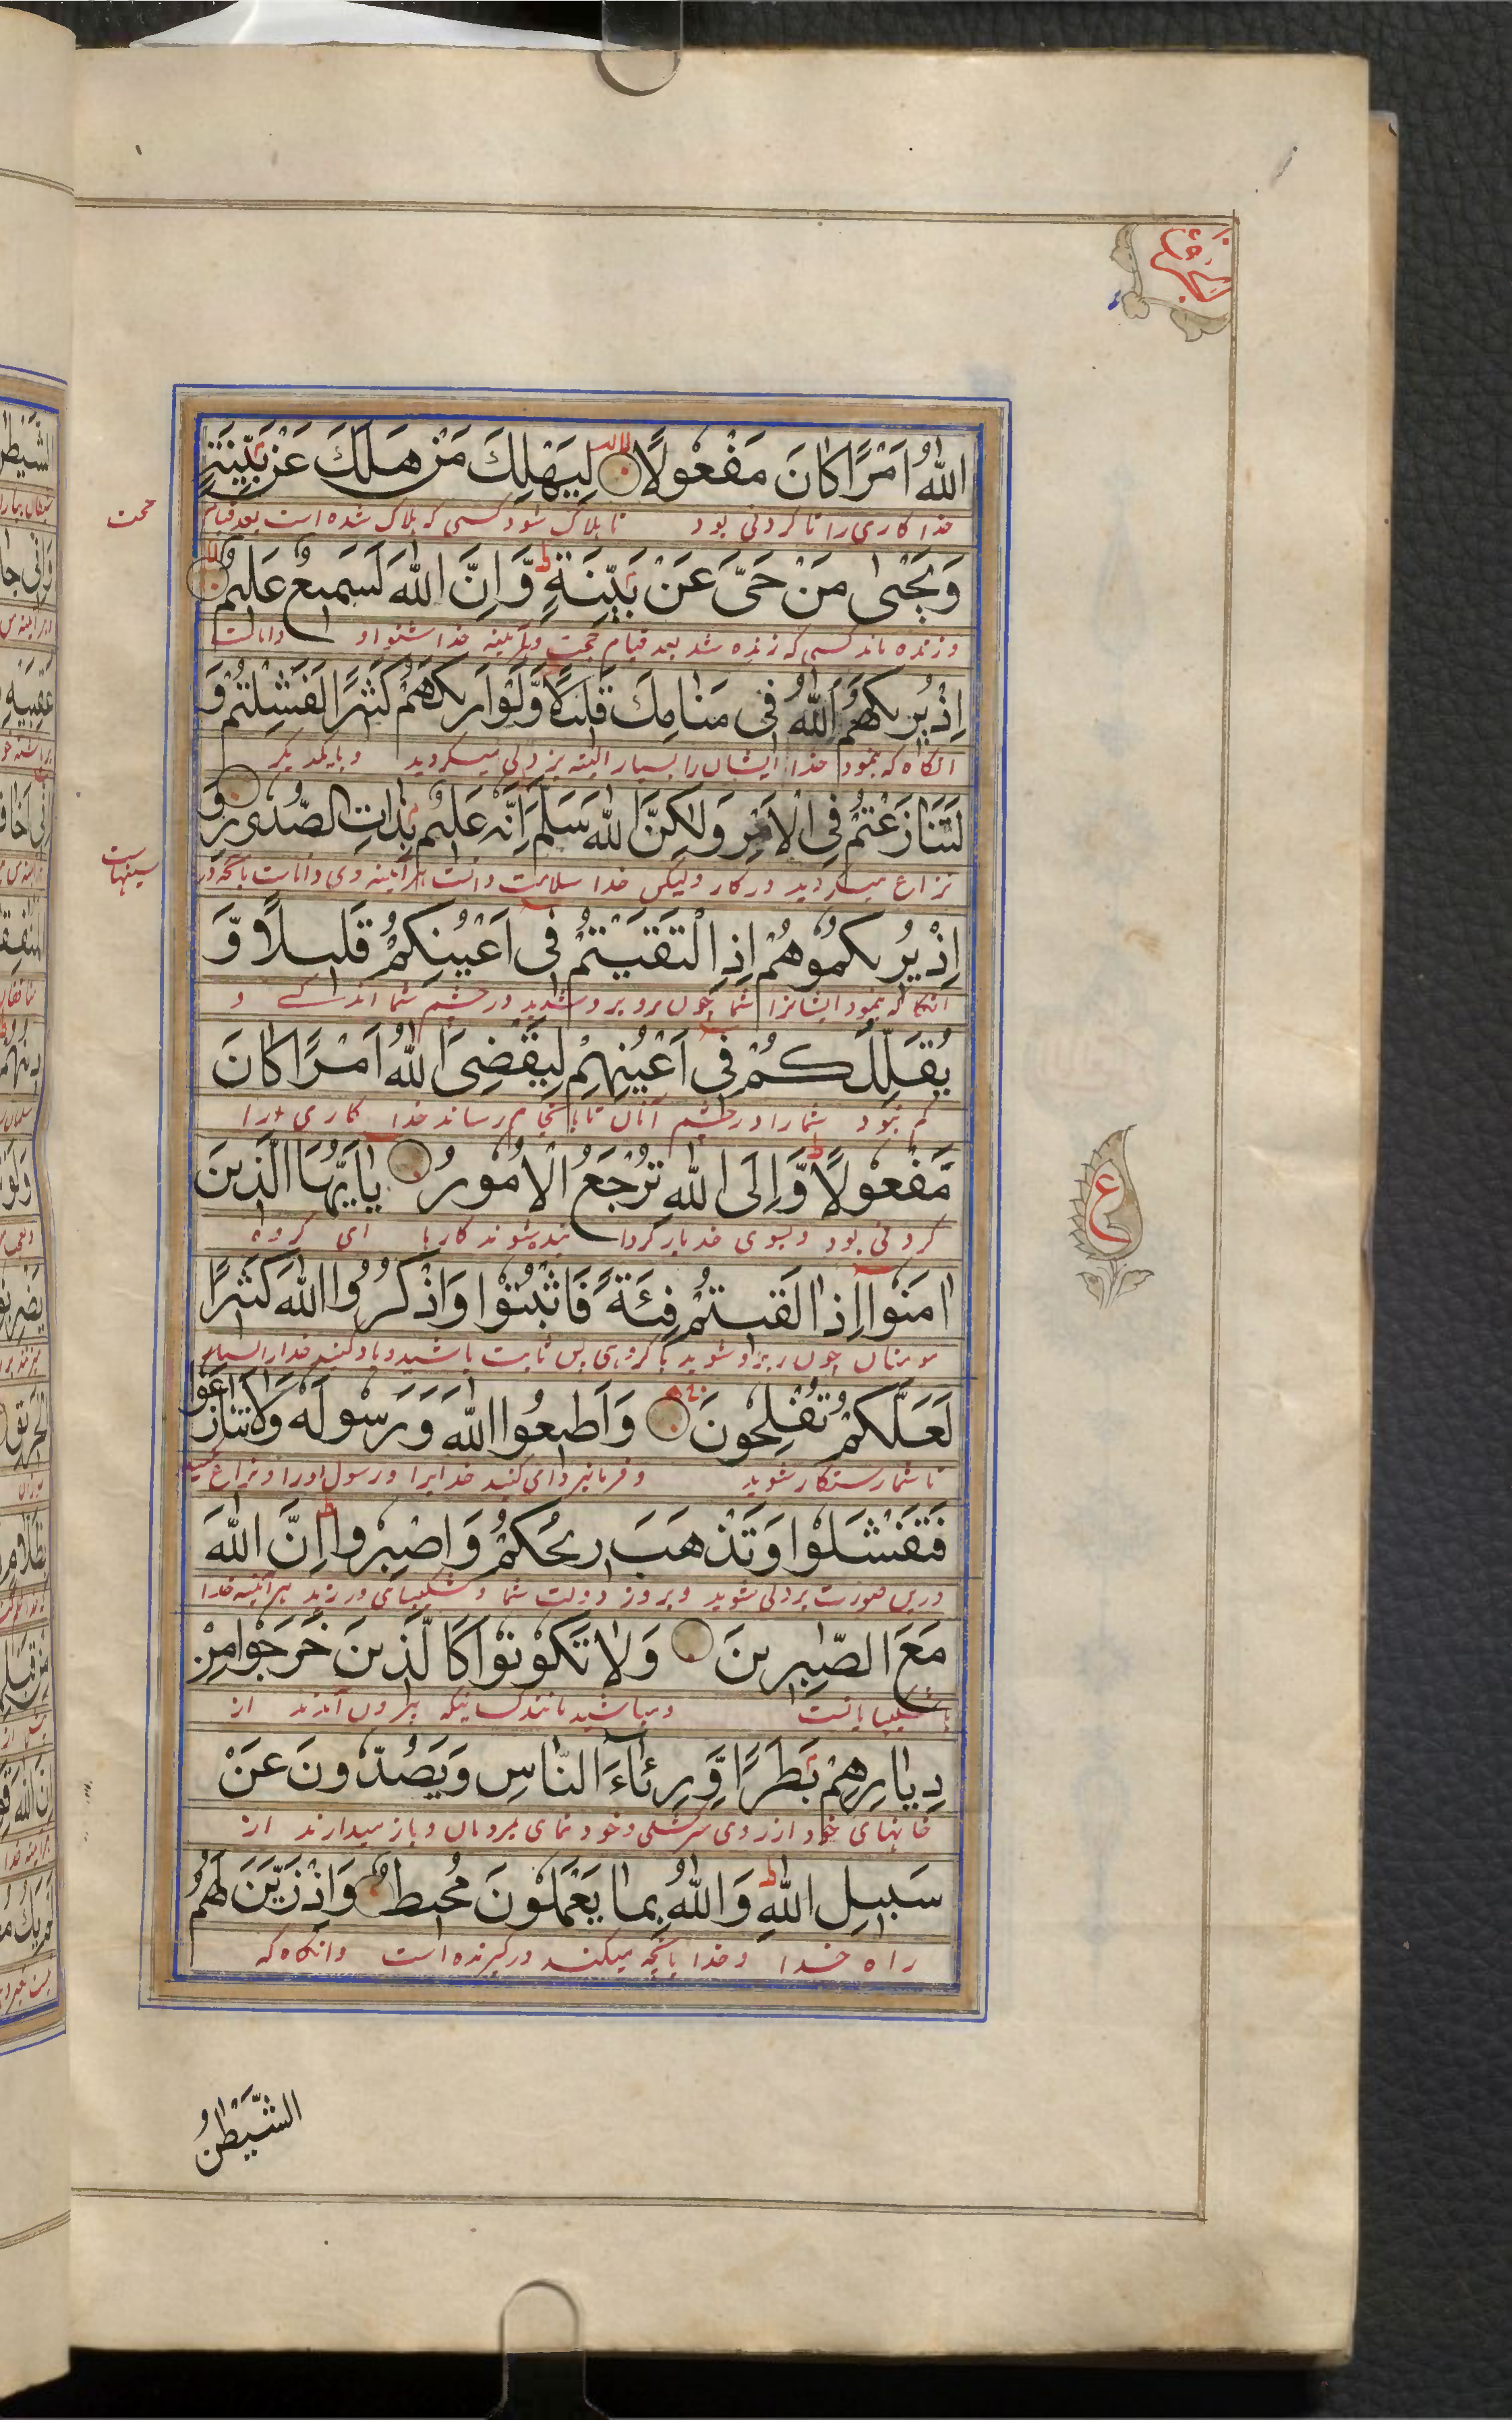 اللّٰهُ اَمْرًا كَانَ مَفْعُولًا لِيَهْلِكَ مَنْ هَلَكَ عَنْ بَيِّنَةٍ
خدا کاری را تا کردنی بود تا هلاک شود کسی که هلاک شده است بعد قیام
حجت
وَيَحْيٰى مَنْ حَىَّ عَنْ بَيِّنَةٍ وَّ اِنَّ اللّٰهَ لَسَمِيْعٌ عَلِيْمٌ
و زنده ماند کسی که زنده شد بعد قیام حجت و هرآینه خدا شنوا و دانا است
اِذْ يُرِيْكَهُمُ اللّٰهُ فِى مَنَامِكَ قَلِيْلًا وَّلَوْ اَرٰىكَهُمْ كَثِيْرًا لَفَشِلْتُمْ وَ
انگاه که بنمود خدا ایشان را بسیار البته بزدلی میکردید و با یکدیگر
لَتَنَازَعْتُمْ فِى الْاَمْرِ وَلٰكِنَّ اللّٰهَ سَلَّمَ اِنَّهٗ عَلِيْمٌ بِذَاتِ الصُّدُوْرِ وَ
نزاع میکردید در کار ولیکن خدا سلامت داشت هرآینه وی داناست بآنچه در
سینهاست
اِذْ يُرِيْكُمُوْهُمْ اِذِ الْتَقَيْتُمْ فِى اَعْيُنِكُمْ قَلِيْلًا وَّ
انگاه که بنمود ایشانرا شما چون روبرو شدید در چشم شما اندکے و
يُقَلِّلُكُمْ فِى اَعْيُنِهِمْ لِيَقْضِىَ اللّٰهُ اَمْرًا كَانَ
کم نمود شما را در چشم آنان تا بانجام رساند خدا کاری را
مَّفْعُوْلًا وَّاِلَى اللّٰهِ تُرْجَعُ الْاُمُوْرُ يٰاَيُّهَا الَّذِيْنَ
کردنی بود و بسوی خدا بازگردانیده شوند کارها ای گروه
اٰمَنُوْا اِذَا لَقِيْتُمْ فِئَةً فَاثْبُتُوْا وَاذْكُرُوا اللّٰهَ كَثِيْرًا
مومنان چون روبرو شوید با گروهی پس ثابت باشید و یاد کنید خدا را بسیار
لَعَلَّكُمْ تُفْلِحُوْنَ وَاَطِيْعُوا اللّٰهَ وَرَسُوْلَهٗ وَلَا تَنَازَعُوْا
تا شما رستگار شوید و فرمانبرداری کنید خدایرا و رسول اورا و نزاع مکنید
فَتَفْشَلُوْا وَتَذْهَبَ رِيْحُكُمْ وَاصْبِرُوا اِنَّ اللّٰهَ
درین صورت بزدلی شوید و برود دولت شما و شکیبائی ورزید هرآینه خدا
مَعَ الصّٰبِرِيْنَ وَلَا تَكُوْنُوْا كَالَّذِيْنَ خَرَجُوْا مِنْ
با شکیبایانست و مباشید مانند کسانیکه بیرون آمدند از
دِيَارِهِمْ بَطَرًا وَّرِئَآءَ النَّاسِ وَيَصُدُّوْنَ عَنْ
خانهای خود از روی سرکشی و خودنمای مردمان و باز میدارند از
سَبِيْلِ اللّٰهِ وَاللّٰهُ بِمَا يَعْمَلُوْنَ مُحِيْطٌ وَاِذْ زَيَّنَ لَهُمُ
راه خدا و خدا بآنچه میکنند درگیرنده است و انگاه که
الشَّيْطٰنُ
ع